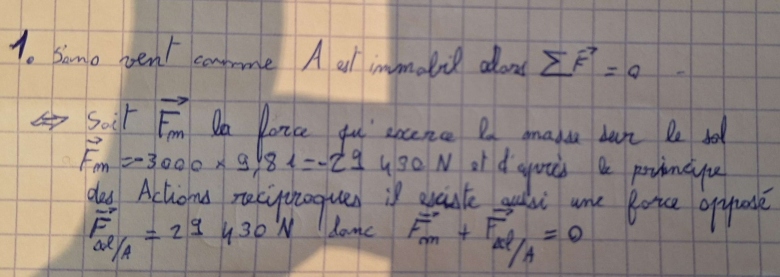 1. Sans vent comme A est immobil alors ∑F⃗ = 0
⇔ Soit F⃗m la force qu'exerce la masse sur le sol
F⃗m = -3000 × 9,81 = -29 430 N et d'après le principe
des Actions reciproques il existe aussi une force opposé
F⃗sol/A = 29 430 N donc F⃗m + F⃗sol/A = 0